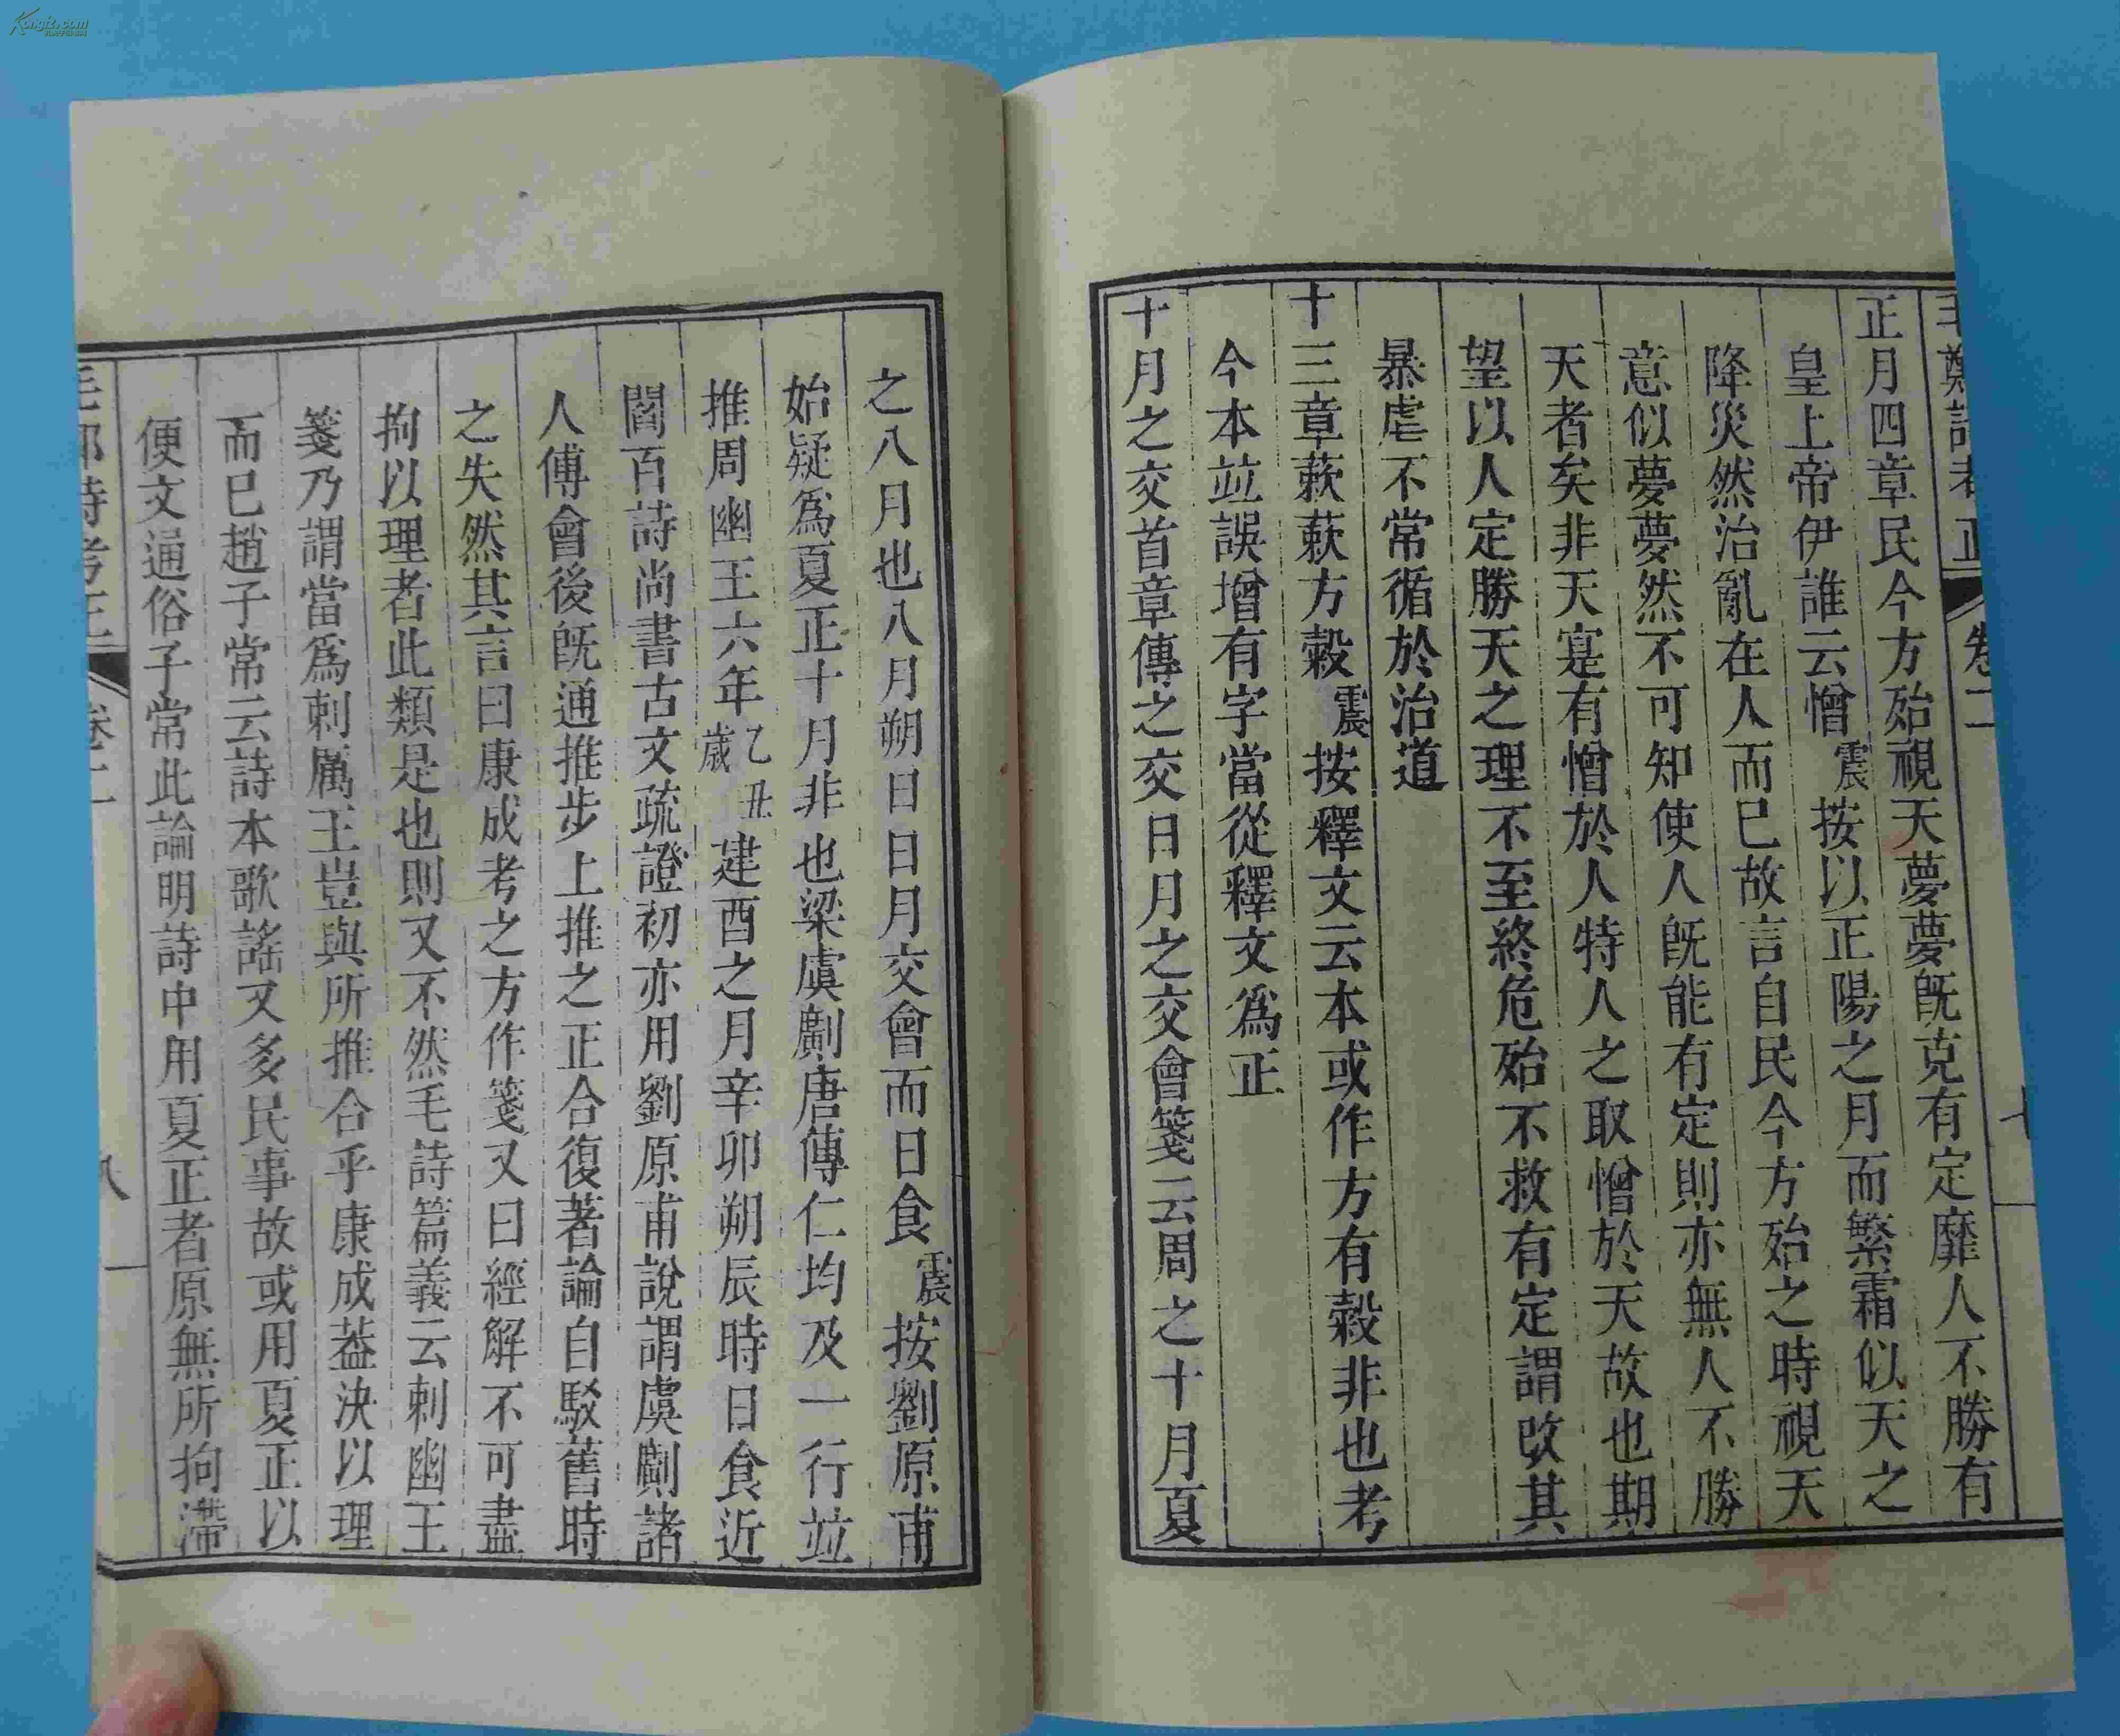 毛鄭詩考正 卷二 七
正月四章民今方殆視天夢夢旣克有定靡人不勝有
皇上帝伊誰云憎震按以正陽之月而繁霜似天之
降災然治亂在人而已故言自民今方殆之時視天
意似夢夢然不可知使人旣能有定則亦無人不勝
天者矣非天寔有憎於人特人之取憎於天故也期
望以人定勝天之理不至終危殆不救有定謂改其
暴虐不常循於治道
十三章蔌蔌方穀震按釋文云本或作方有穀非也考
今本竝誤增有字當從釋文爲正
十月之交首章傳之交日月之交會箋云周之十月夏
之八月也八月朔日日月交會而日食震按劉原甫
始疑爲夏正十月非也梁虞𠠎唐傅仁均及一行竝
推周幽王六年乙丑歲建酉之月辛卯朔辰時日食近
閻百詩尚書古文疏證初亦用劉原甫說謂虞𠠎諸
人傅會後旣通推步上推之正合復著論自駁舊時
之失然其言曰康成考之方作箋又曰經解不可盡
拘以理者此類是也則又不然毛詩篇義云刺幽王
箋乃謂當爲刺厲王豈與所推合乎康成葢決以理
而已趙子常云詩本歌謠又多民事故或用夏正以
便文通俗子常此論明詩中用夏正者原無所拘滯
毛鄭詩考正 卷二 八
Kongfz.com